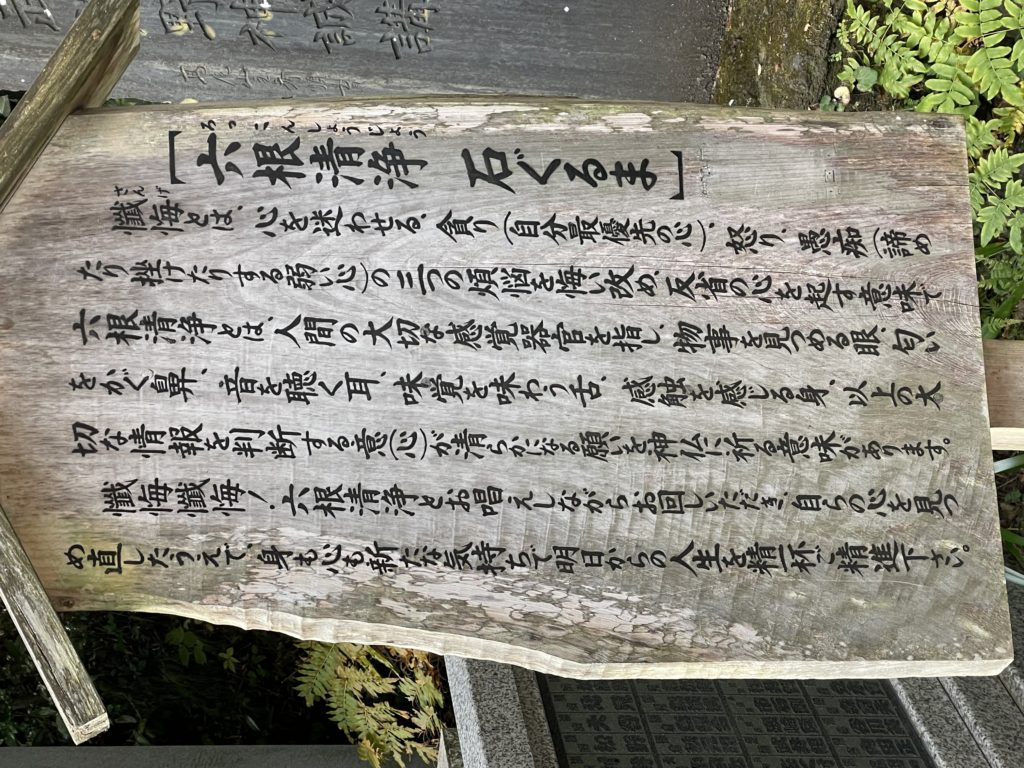 [六根清浄 石ぐるま]
ろっこんしょうじょう
懺悔とは、心を迷わせる、貪り(自分最優先の心)、怒り、愚痴(諦め
さんげ
たり挫けたりする弱い心)の三つの煩悩を悔い改め、反省の心を起す意味で
六根清浄とは、人間の大切な感覚器官を指し、物事を見つめる眼、匂い
をかぐ鼻、音を聴く耳、味覚を味わう舌、感触を感じる身、以上の大
切な情報を判断する意(心)が清らかになる願いを神仏に祈る意味があります。
懺悔懺悔!六根清浄とお唱えしながらお回しいただき、自らの心を見つ
め直したうえで、身も心も新たな気持ちで明日からの人生を精一杯ご精進下さい。